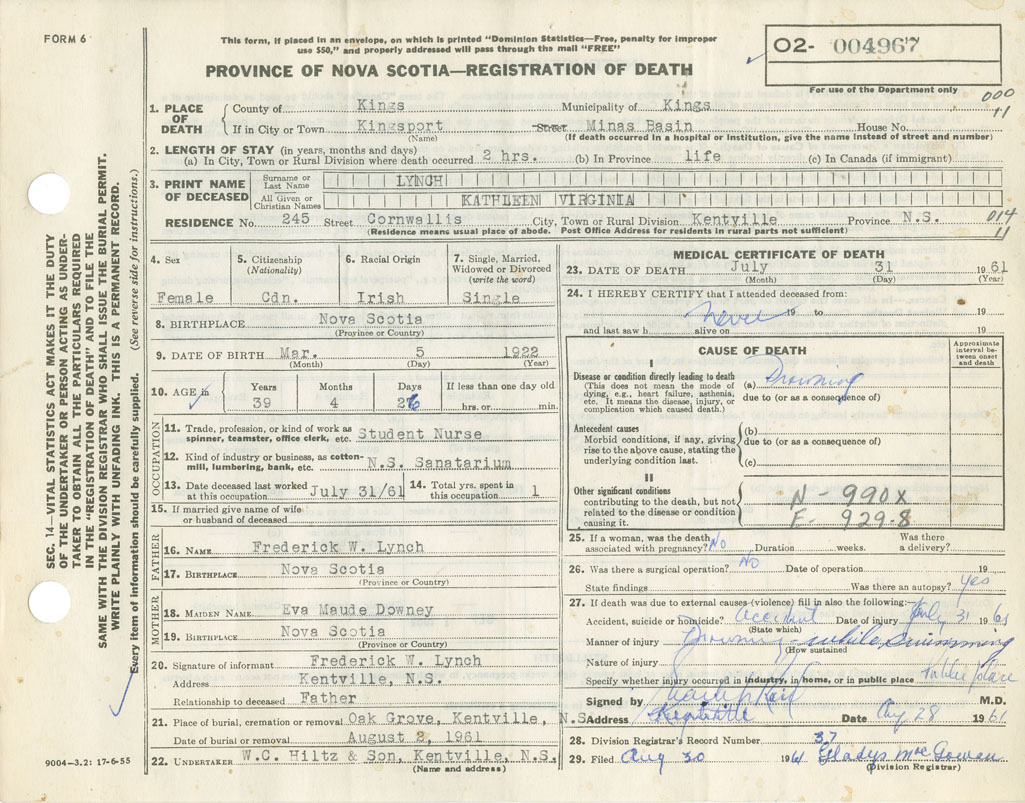 FORM 6
This form, if placed in an envelope, on which is printed "Dominion Statistics—Free, penalty for improper
use $50," and properly addressed will pass through the mail "FREE"
O2- 004967
PROVINCE OF NOVA SCOTIA—REGISTRATION OF DEATH
For use of the Department only
1. PLACE OF DEATH County of Kings Municipality of Kings 000
If in City or Town Kingsport Street Minas Basin House No. 11
(Name) (If death occurred in a hospital or institution, give the name instead of street and number)
2. LENGTH OF STAY (in years, months and days)
(a) In City, Town or Rural Division where death occurred 2 hrs. (b) In Province life (c) In Canada (if immigrant)
3. PRINT NAME OF DECEASED Surname or Last Name LYNCH
All Given or Christian Names KATHLEEN VIRGINIA
RESIDENCE No. 245 Street Cornwallis City, Town or Rural Division Kentville Province N.S. 014
(Residence means usual place of abode. Post Office Address for residents in rural parts not sufficient) 11
4. Sex Female
5. Citizenship (Nationality) Cdn.
6. Racial Origin Irish
7. Single, Married, Widowed or Divorced (write the word) Single
8. BIRTHPLACE Nova Scotia
(Province or Country)
9. DATE OF BIRTH Mar. 5 1922
(Month) (Day) (Year)
10. AGE in Years Months Days If less than one day old
39 4 26 hrs. or min.
OCCUPATION
11. Trade, profession, or kind of work as
spinner, teamster, office clerk, etc. Student Nurse
12. Kind of industry or business, as cotton-
mill, lumbering, bank, etc. N.S. Sanatarium
13. Date deceased last worked at this occupation July 31/61 14. Total yrs. spent in this occupation 1
15. If married give name of wife
or husband of deceased
FATHER
16. NAME Frederick W. Lynch
17. BIRTHPLACE Nova Scotia
(Province or Country)
MOTHER
18. MAIDEN NAME Eva Maude Downey
19. BIRTHPLACE Nova Scotia
(Province or Country)
20. Signature of informant Frederick W. Lynch
Address Kentville, N.S.
Relationship to deceased Father
21. Place of burial, cremation or removal Oak Grove, Kentville, N.S.
Date of burial or removal August 2, 1961
22. UNDERTAKER W.C. Hiltz & Son, Kentville, N.S.
(Name and address)
MEDICAL CERTIFICATE OF DEATH
23. DATE OF DEATH July 31 1961
(Month) (Day) (Year)
24. I HEREBY CERTIFY that I attended deceased from:
Never 19 to 19
and last saw h alive on 19
CAUSE OF DEATH
Approximate interval be-
tween onset
and death
I
Disease or condition directly leading to death
(This does not mean the mode of
dying, e.g., heart failure, asthenia,
etc. It means the disease, injury, or
complication which caused death.)
(a) Drowning
due to (or as a consequence of)
Antecedent causes
Morbid conditions, if any, giving
rise to the above cause, stating the
underlying condition last.
(b)
due to (or as a consequence of)
(c)
II
Other significant conditions
contributing to the death, but not
related to the disease or condition
causing it.
N - 990x
E - 929-8
25. If a woman, was the death
associated with pregnancy? No Duration weeks. Was there a delivery?
26. Was there a surgical operation? No Date of operation 19
State findings Was there an autopsy? Yes
27. If death was due to external causes (violence) fill in also the following:—
Accident, suicide or homicide? accident Date of injury July 31 1961
(State which)
Manner of injury Drowning - while swimming
(How sustained
Nature of injury
Specify whether injury occurred in industry, in home, or in public place Public place
Signed by M.D.
Address Date Aug 28 1961
28. Division Registrar's Record Number 37
29. Filed Aug 30 1961 Gladys MacGowan
(Division Registrar)
SEC. 14—VITAL STATISTICS ACT MAKES IT THE DUTY
OF THE UNDERTAKER OR PERSON ACTING AS UNDER-
TAKER TO OBTAIN ALL THE PARTICULARS REQUIRED
IN THE "REGISTRATION OF DEATH" AND TO FILE THE
SAME WITH THE DIVISION REGISTRAR WHO SHALL ISSUE THE BURIAL PERMIT.
WRITE PLAINLY WITH UNFADING INK. THIS IS A PERMANENT RECORD.
Every item of information should be carefully supplied. (See reverse side for instructions.)
9004—3.2: 17-6-55